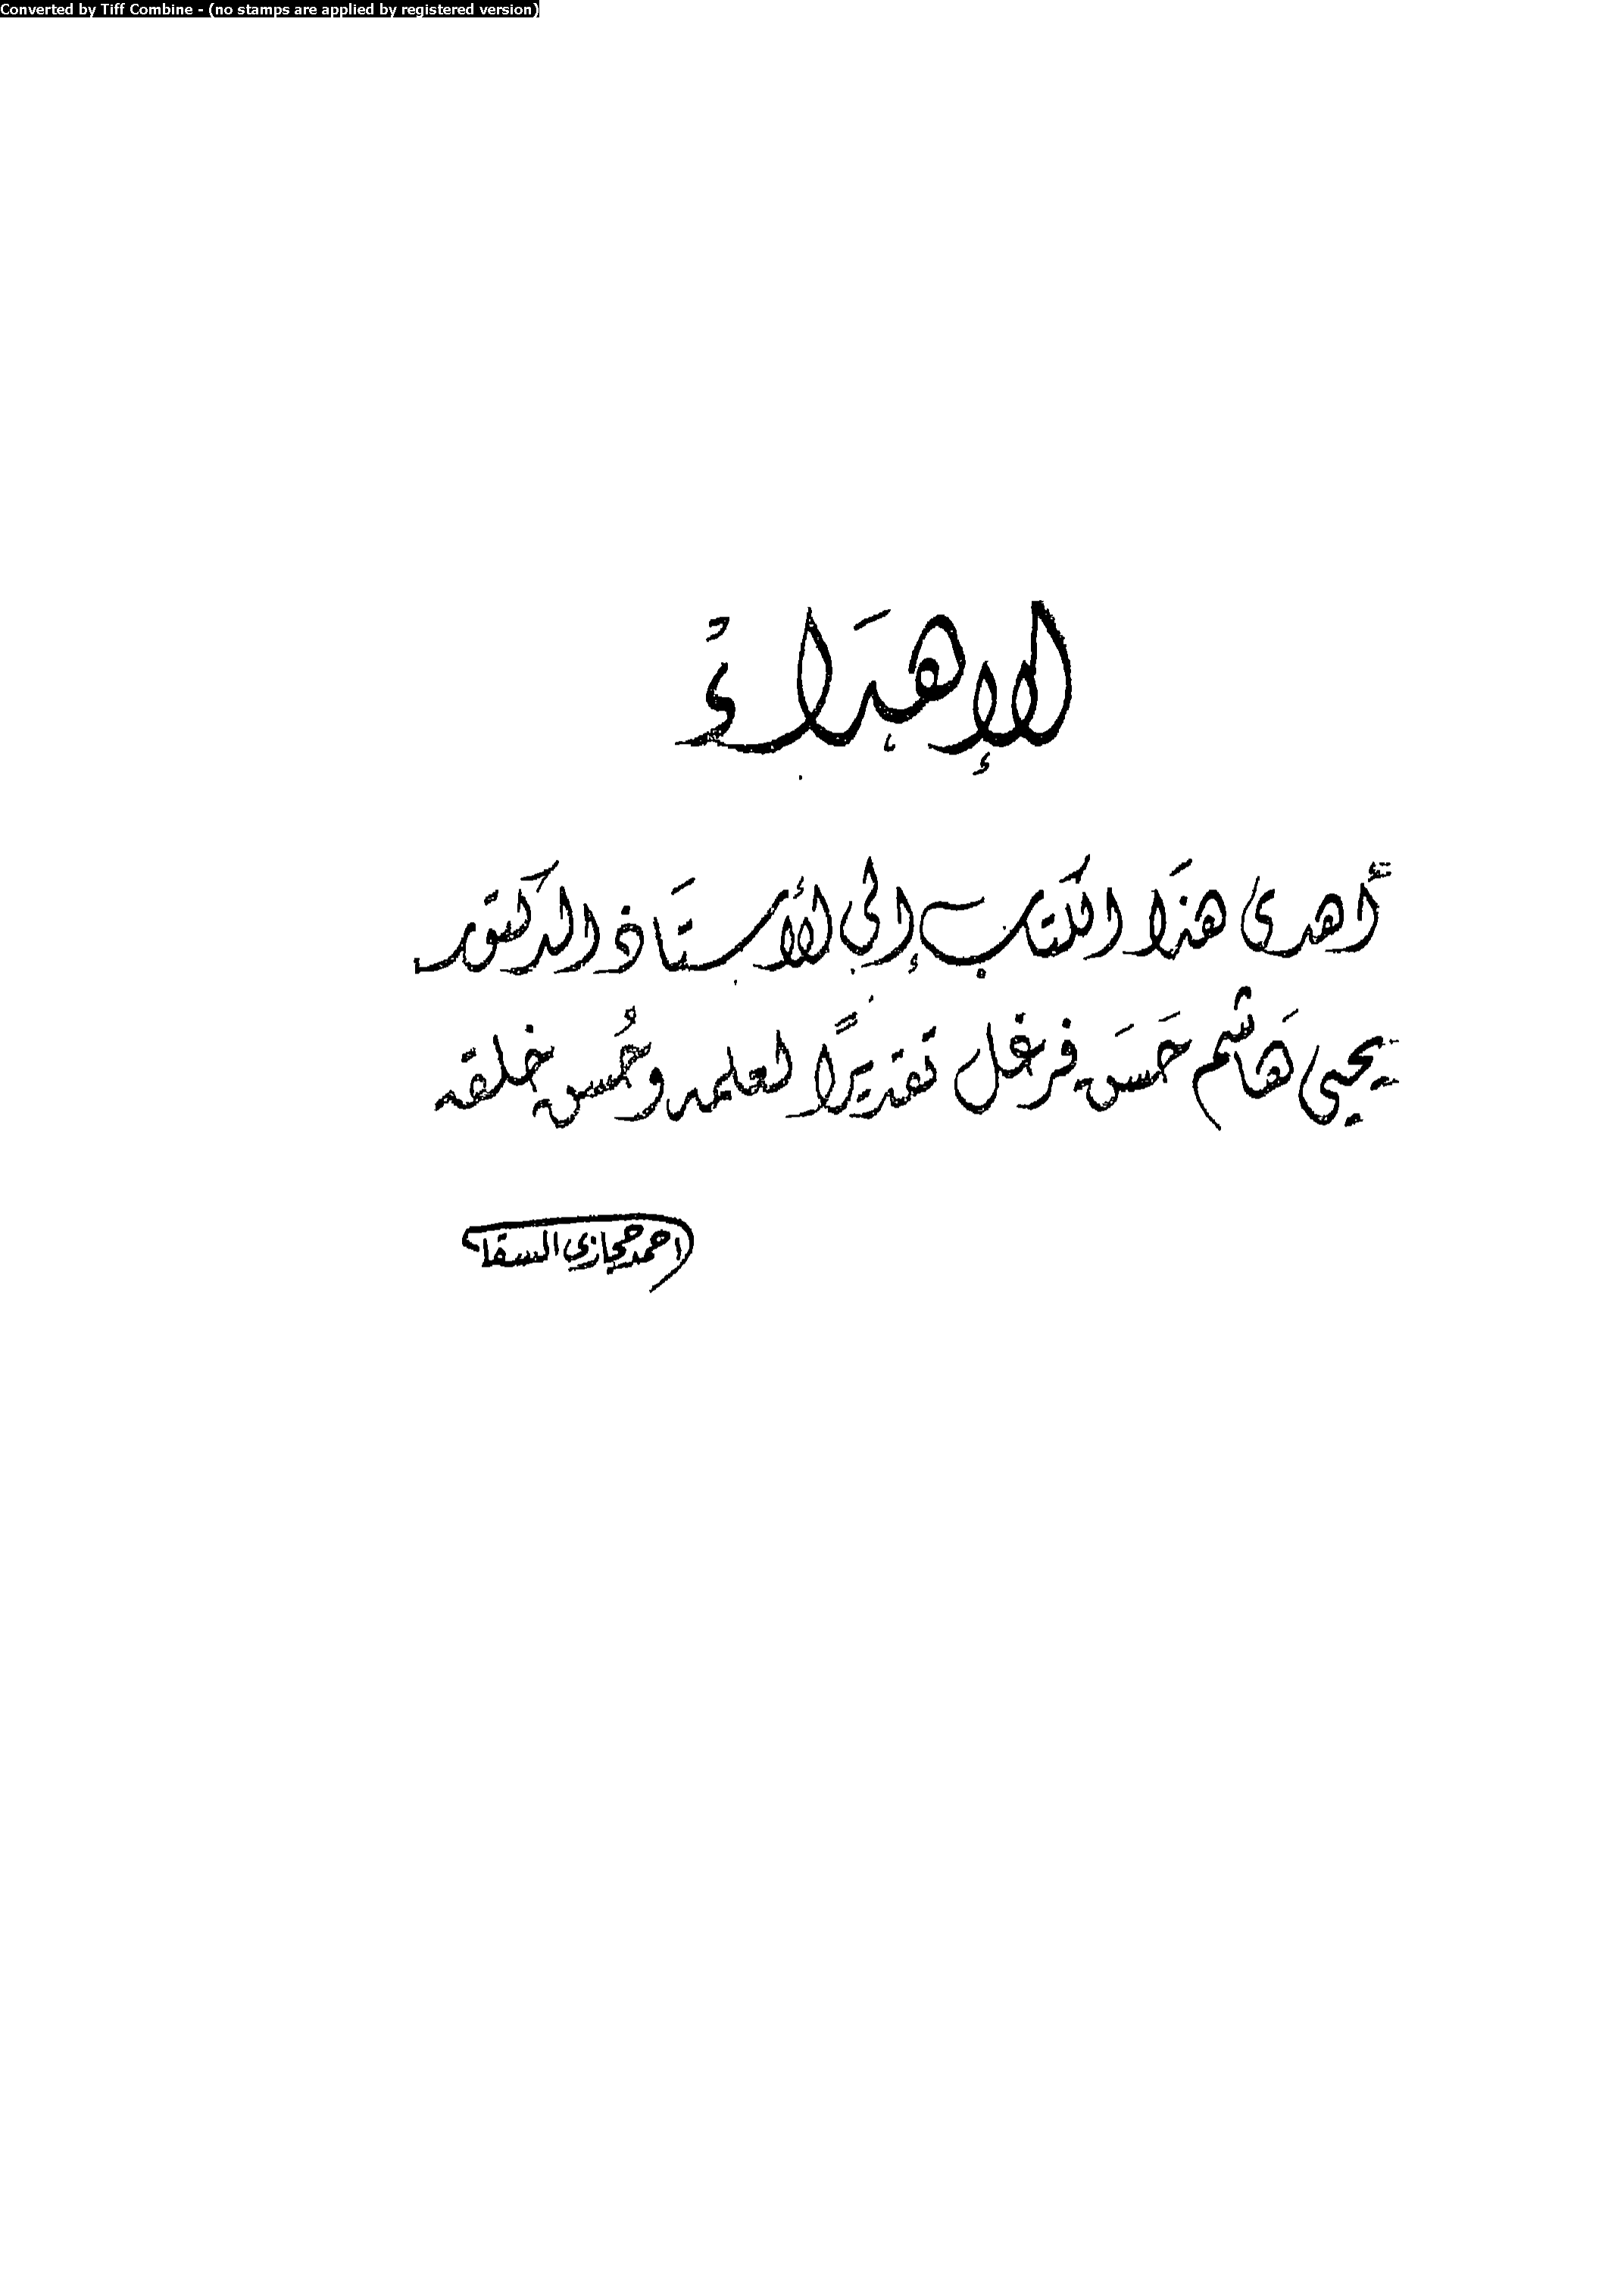 Converted by Tiff Combine - (no stamps are applied by registered version)
الإهداء
أهدى هذا الكتاب إلى الأستاذ الدكتور
يحيى هاشم حسن فرغل تقديرًا لعلمه وحُسن خلقه
احمد حجازى السقا